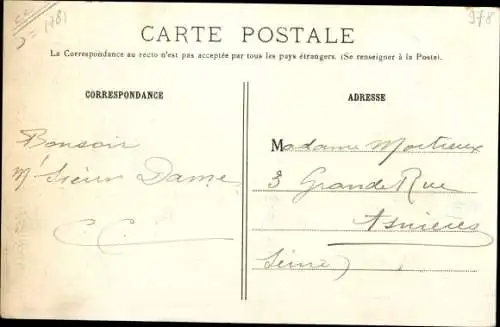 C.C.
1781
978
CARTE POSTALE
La Correspondance au recto n'est pas acceptée par tous les pays étrangers. (Se renseigner à la Poste).
CORRESPONDANCE
Bonsoir
M'sieur Dame
C. C.
ADRESSE
Madame Mortreux
3 Grande Rue
Asnières
Seine)